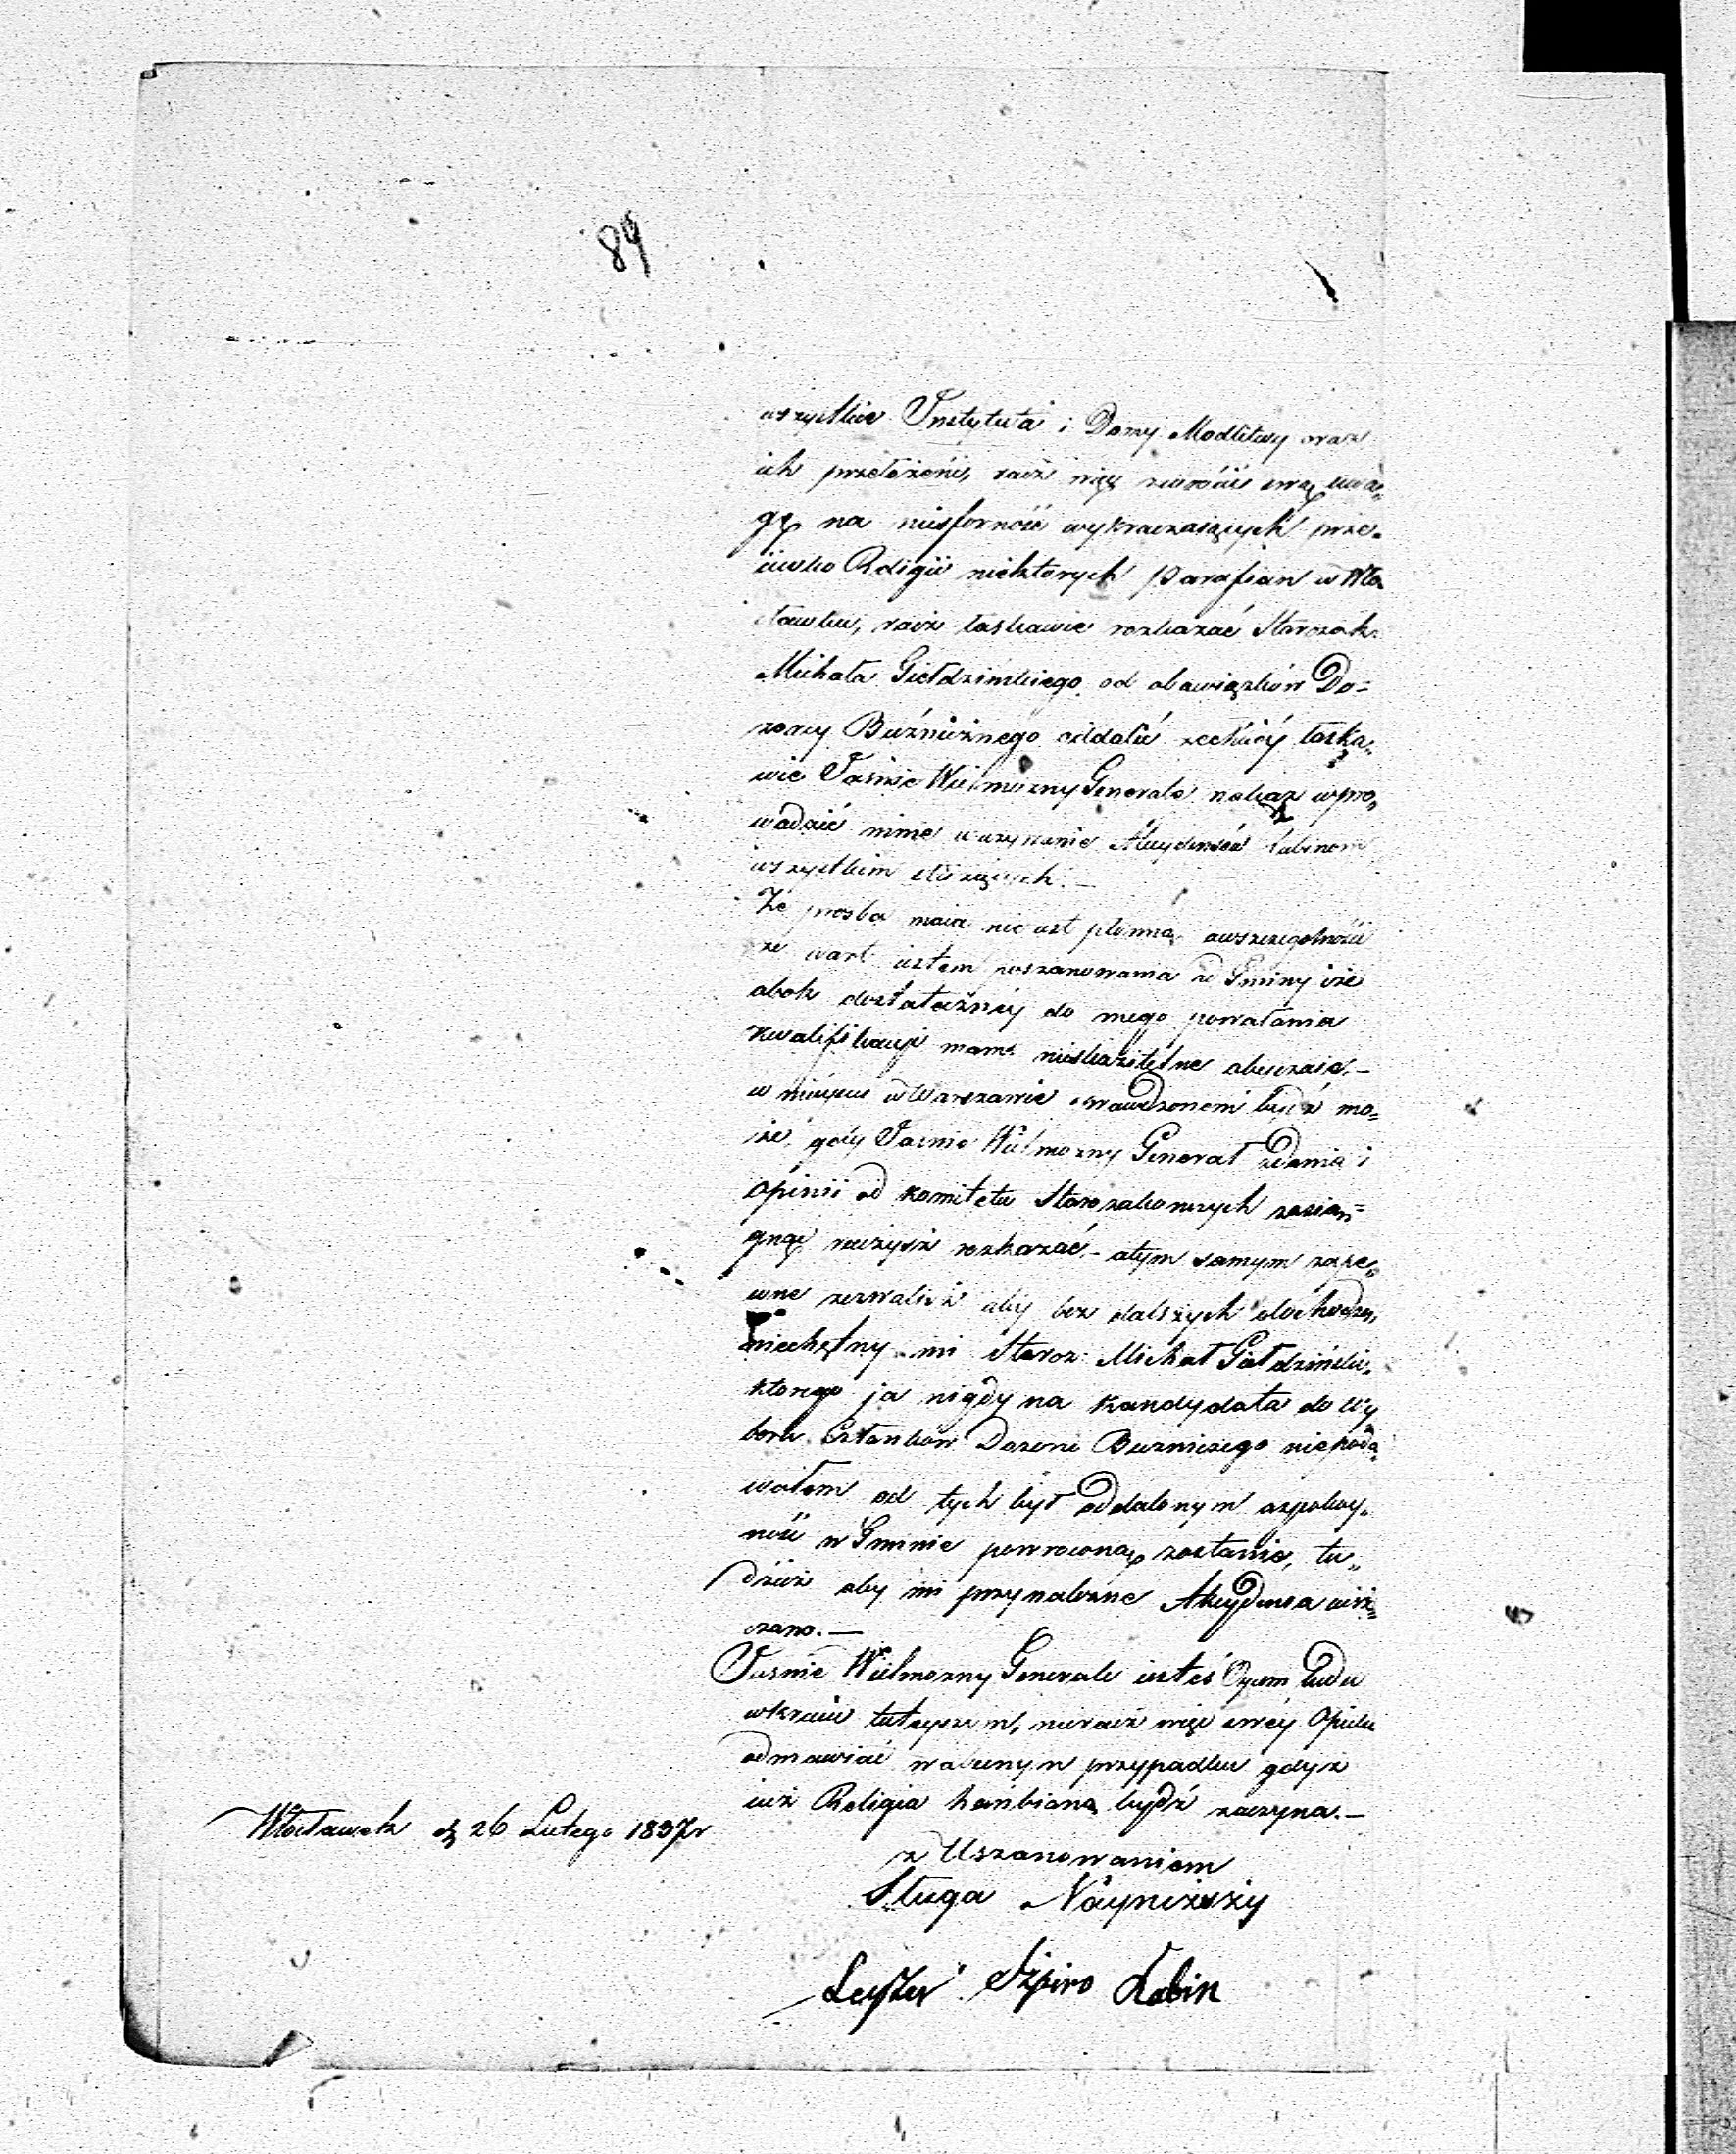 89
wszystkie Instytuta i Domy Modlitwy oraz
ich przełożeni, racz więc zwrócić swą uwa„
gę na niesforność wykraczaiących prze„
ciwko Religii niektorych Parafian w Wło
cławku, racz łaskawie rozkazać Starozak:
Michała Giełdzińskiego od obowiązków Do=
zorcy Bużnicznego oddalić zechciéy łaska„
wie Jaśnie Wielmożny Generale nakaz wpro„
wadzić mnie w używanie Akcydensów Rabinom
wszystkim służących.—
Że prosba moia nie iest płonną, a w szczegolności
że wart iestem poszanowania od Gminy i że
obok dostateczney do mego powołania
kwalifikacyi mam nieskazitelne obyczaie.—
w mieyscu w Warszawie sprawdzonem bydź mo=
że, gdy Jasnie Wielmożny Generał zdania i
opinii od Komitetu Starozakonnych zasiąg=
gnąć raczysz rozkazać.— a tym samym zape„
wne zezwalisz aby bez dalszych dochodzeń
niechętny mi Staroz: Michał Giełdziński„
ktorego ja nigdy na Kandydata do Wy
boru Członków Dozoru Buzniczego niepoda„
wałem od tych był oddalonym a spokoy„
ność w Gminie powroconą zostanie, tu„
dzież aby mi przynależne Akcydensa uisz„
czano.—
Jasnie Wielmozny Generale iesteś Oycem Ludu
w kraiu tuteyszym, nieracz więc swéy Opieki
odmawiać w obecnym przypadku gdyż
iuż Religia hańbioną bydź zaczyna.—
Włocławek d 26 Lutego 1837r
z Uszanowaniem
Sługa Nayniższy
Leyzer Szpiro Rabin